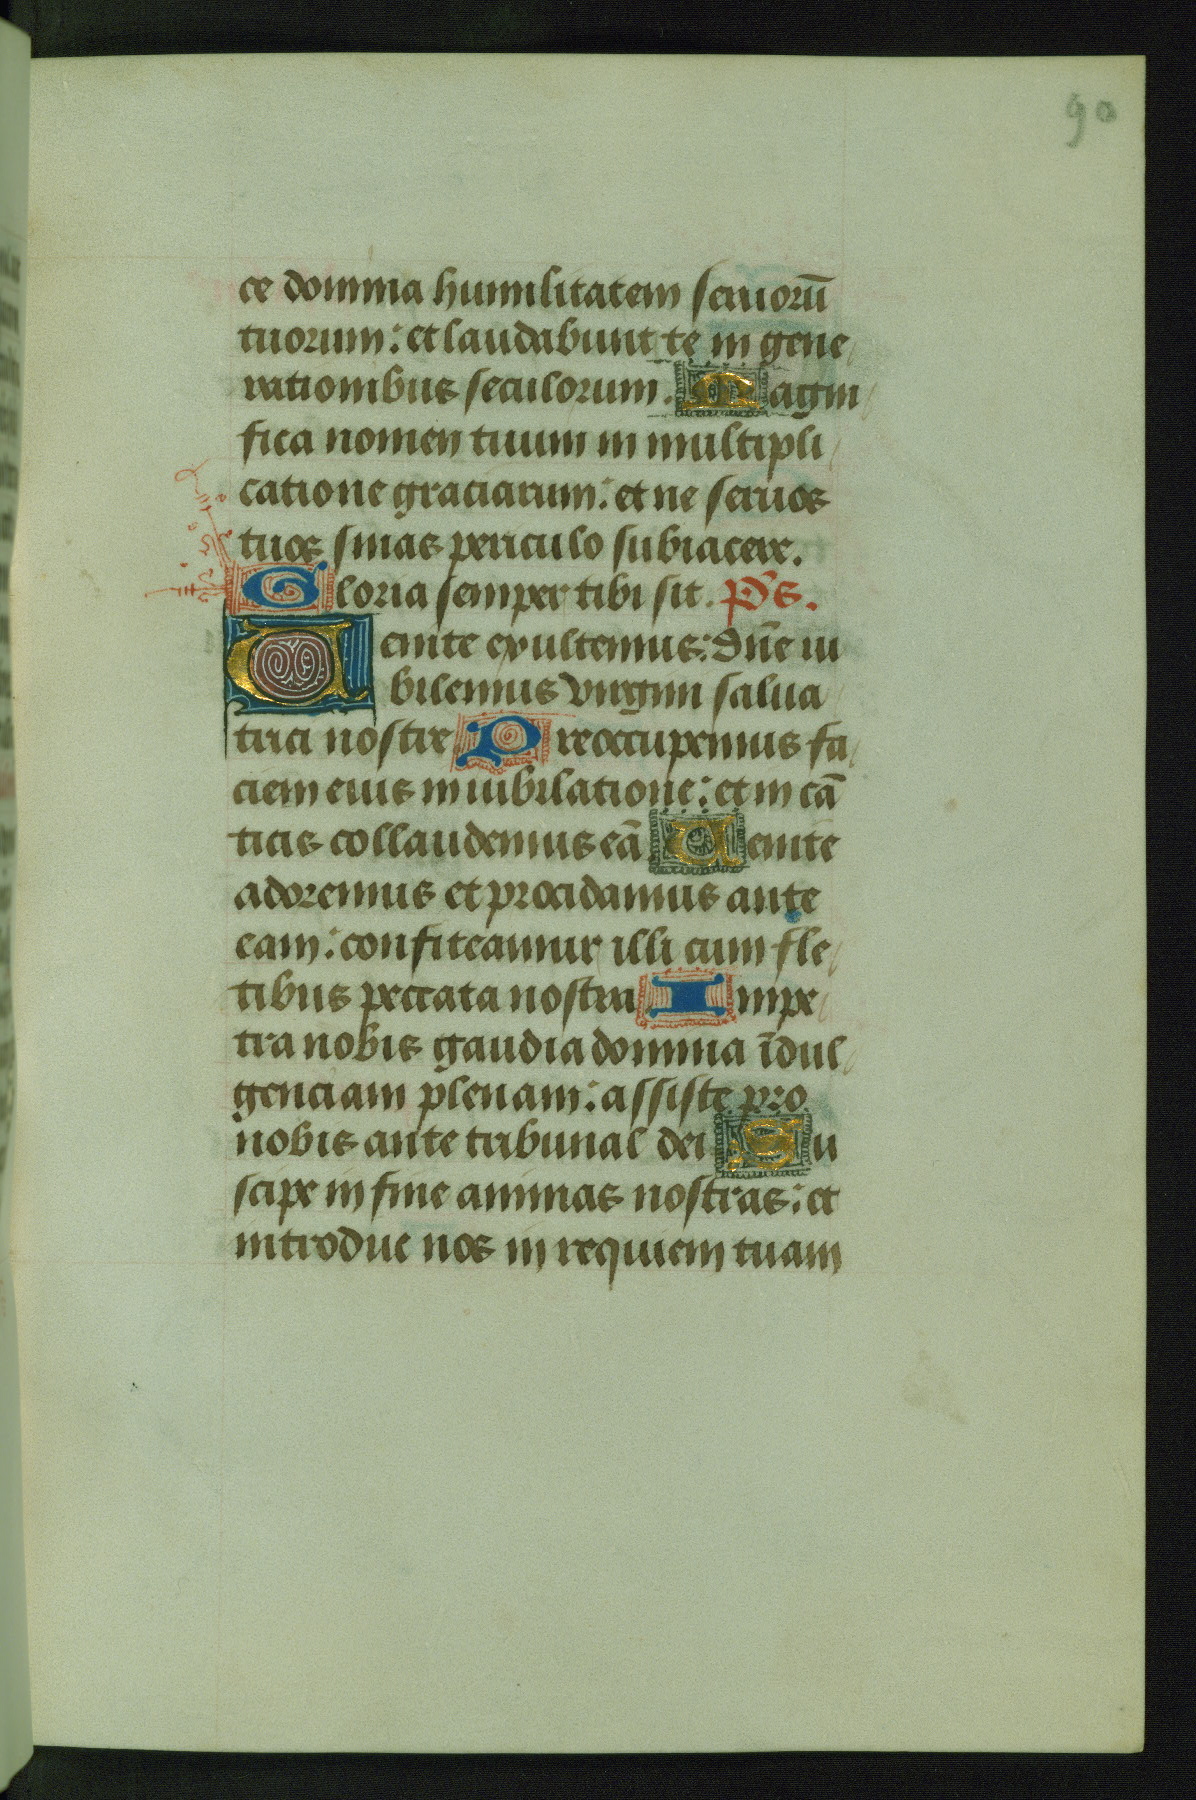 90
ce domina humilitatem seruorū
tuorum: et laudabunt te in gene
rationibus seculorum. Magni
fica nomen tuum in multipli
catione graciarum: et ne seruos
tuos sinas periculo subiacere.
Gloria semper tibi sit. p̄s.
Uenite exultemus: dn̄e iu
bilemus virgini salua
trici nostre Preoccupemus fa
ciem eius in iubilatione: et in cā
ticis collaudemus eā Uenite
adoremus et procidamus ante
eam: confiteamur illi cum fle
tibus peccata nostra Impe
tra nobis gaudia domina īdul
genciam plenam: assiste pro
nobis ante tribunal dei Su
scipe in fine animas nostras: et
introduc nos in requiem tuam